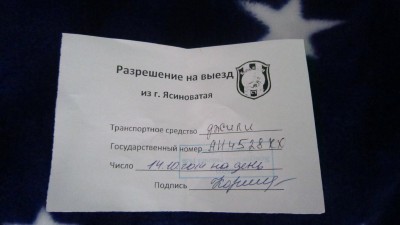 Разрешение на выезд
из г. Ясиноватая
Транспортное средство джили
Государственный номер АН4528КХ
Число 14.10 на день
Подпись